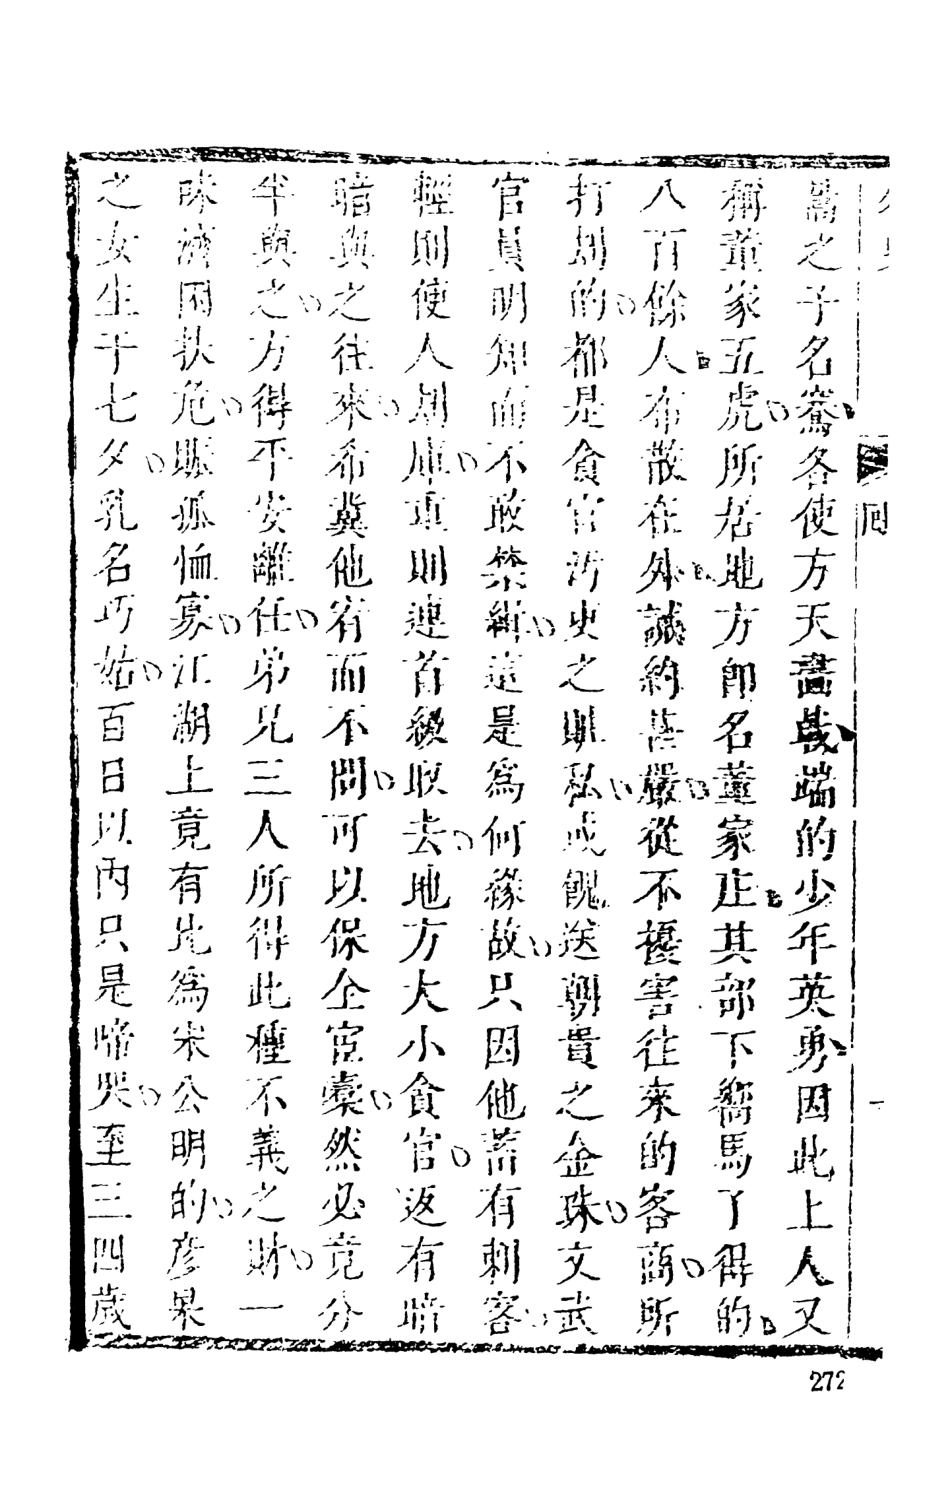 喬之子名騫各使方天畫戟端的少年英勇因此上人又
稱董家五虎所居地方即名董家庄其部下嚮馬了得的
八百餘人布散在外誡約甚嚴從不擾害往來的客商所
打刼的都是貪官汚吏之賍私或餽送朝貴之金珠文武
官員明知而不敢禁緝這是爲何緣故只因他蓄有刺客
輕則使人刼庫重則連首級取去地方大小貪官返有暗
暗與之往來希冀他宥而不問可以保全宦槖然必竟分
半與之方得平安離任弟兄三人所得此種不義之財一
味濟困扶危賑孤恤寡江湖上竟有比爲宋公明的彥杲
之女生于七夕乳名巧姑百日以內只是啼哭至三四歲
回
272